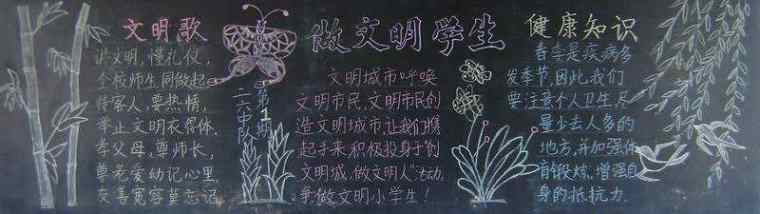 文明歌
讲文明，懂礼仪，
全校师生同做起。
待客人，要热情，
举止文明衣得体。
孝父母，尊师长，
尊老爱幼记心里
友善宽容莫忘记
第1期
二六中队
做文明学生
文明城市呼唤
文明市民，文明市民创
造文明城市，让我们携
起手来，积极投身于“创
文明城，做文明人”活动，
争做文明小学生！
健康知识
春季是疾病多
发季节，因此我们
要注意个人卫生，尽
量少去人多的
地方，并加强体
育锻炼，增强自
身的抵抗力